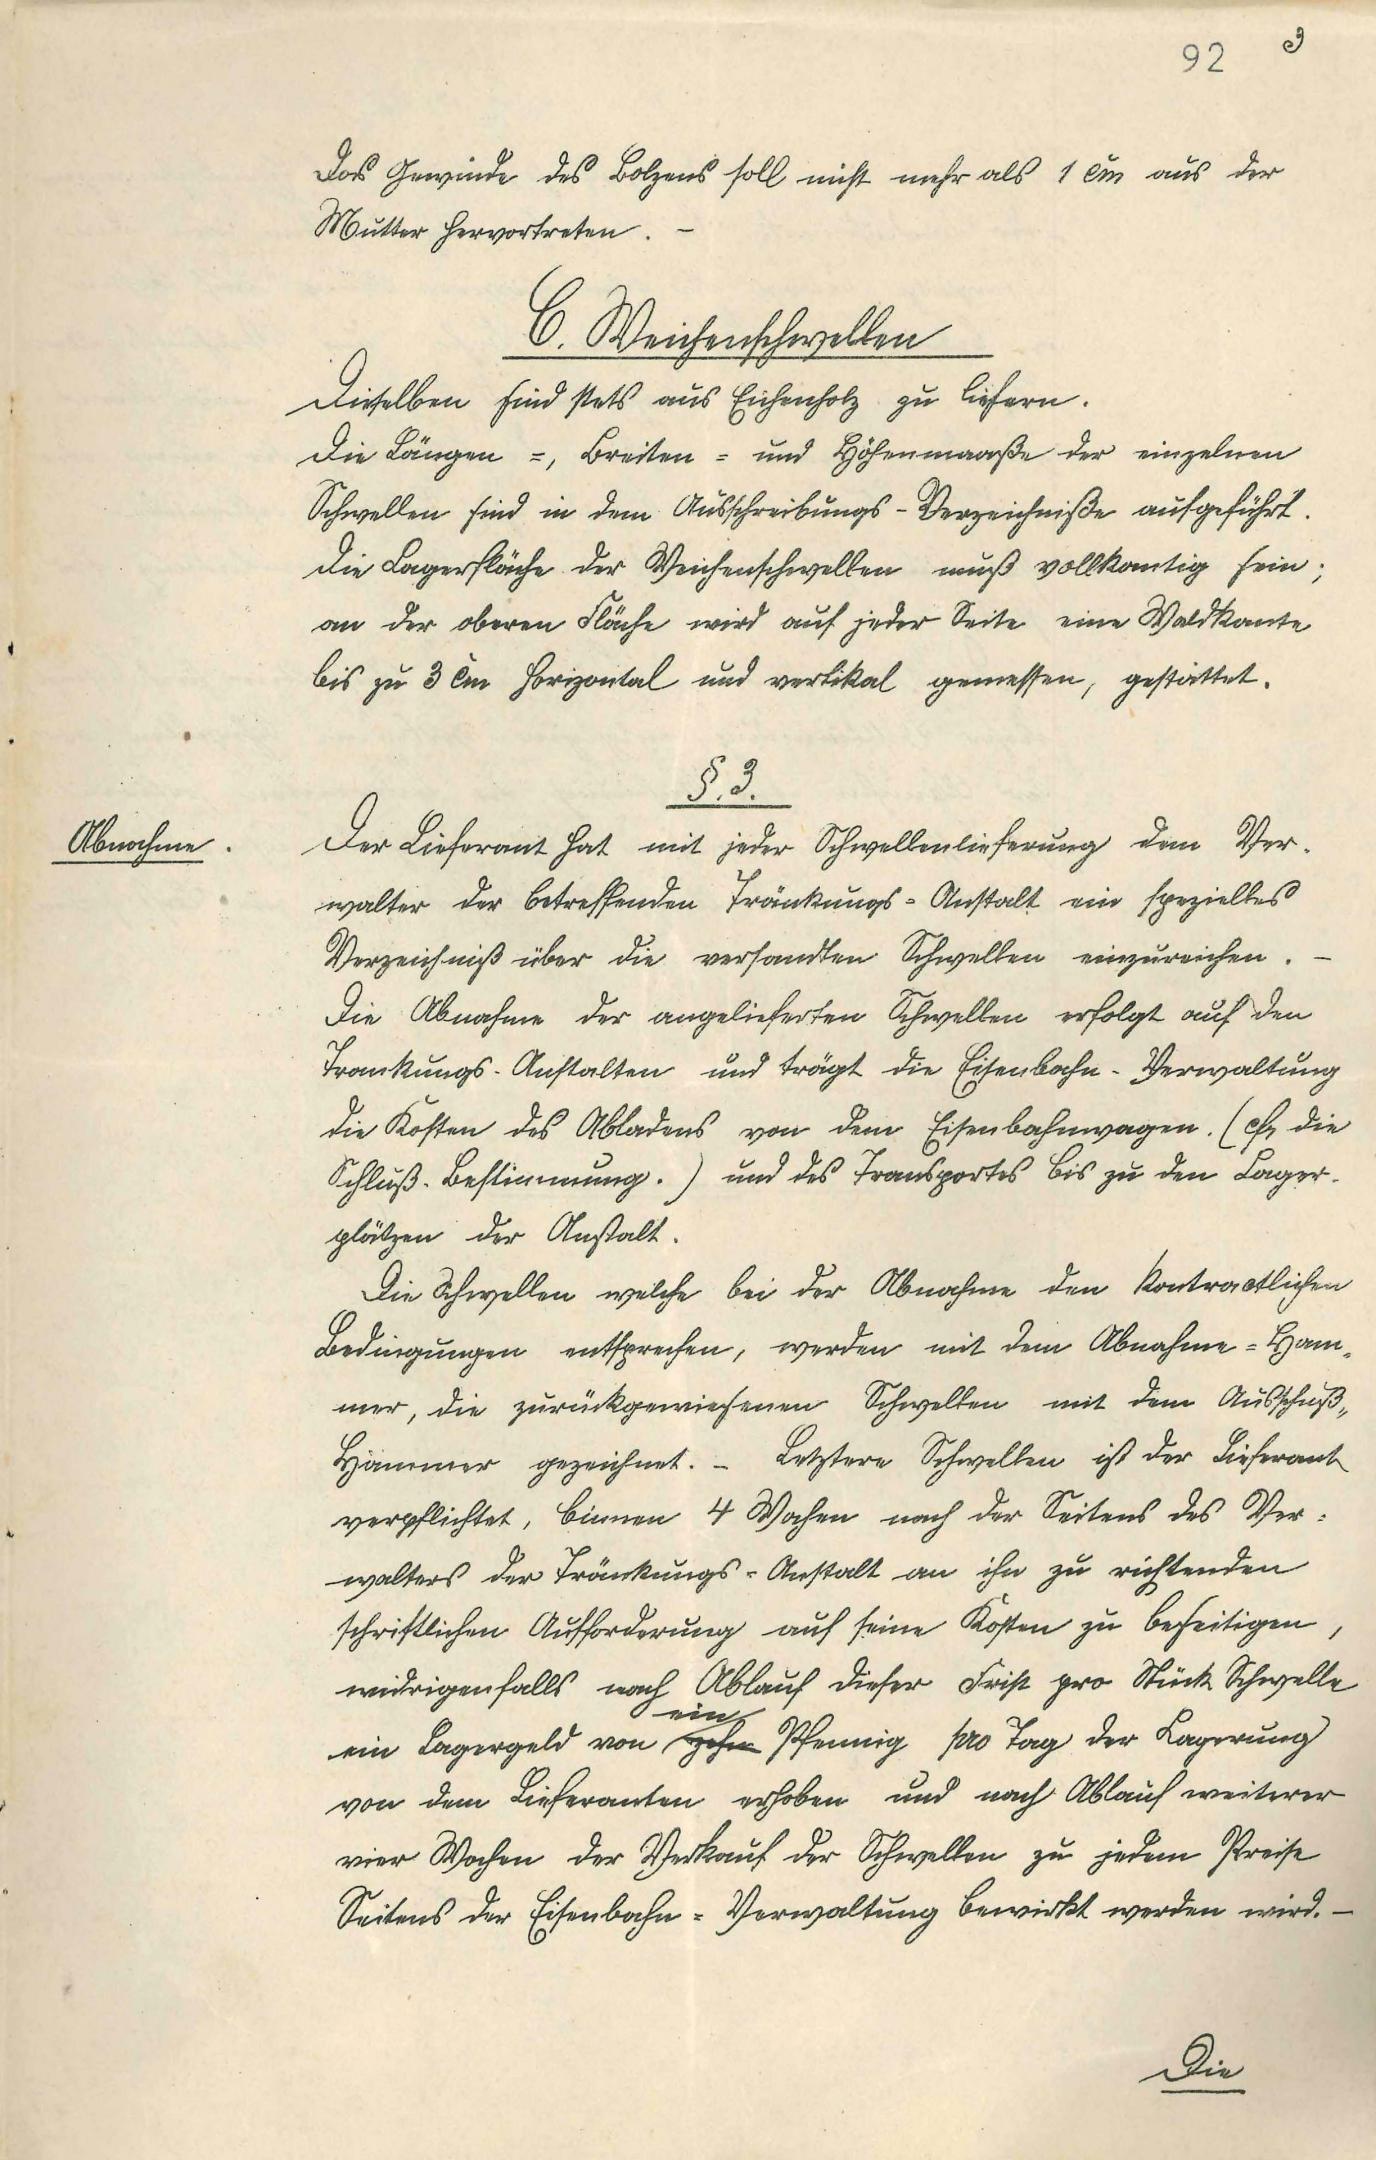 92 3
Das Gewinde des Bolzens soll nicht mehr als 1 cm aus der
Mutter hervortreten. –
C. Weichenschwellen
Dieselben sind stets aus Eichenholz zu liefern.
Die Längen =, Breiten = und Höhenmaaße der einzelnen
Schwellen sind in dem Ausschreibungs-Verzeichniße aufgeführt.
Die Lagerfläche der Weichenschwellen muß vollkantig sein;
an der oberen Fläche wird auf jeder Seite eine Waldkante
bis zu 3 cm horizontal und vertikal gemessen, gestattet.
§. 3.
Abnahme.
Der Lieferant hat mit jeder Schwellenlieferung dem Ver-
walter der betreffenden Tränkungs-Anstalt ein spezielles
Verzeichniß über die versandten Schwellen einzureichen. –
Die Abnahme der angelieferten Schwellen erfolgt auf den
Trankungs-Anstalten und trägt die Eisenbahn-Verwaltung
die Kosten des Abladens von dem Eisenbahnwagen. (cfr die
Schluß-Bestimmung.) und des Transportes bis zu den Lager-
plätzen der Anstalt.
Die Schwellen welche bei der Abnahme den kontractlichen
Bedingungen entsprechen, werden mit dem Abnahme=Ham-
mer, die zurückgewiesenen Schwellen mit dem Ausschuß„
Hammer gezeichnet. – Letztere Schwellen ist der Lieferant
verpflichtet, binnen 4 Wochen nach der Seitens des Ver-
walters der Tränkungs-Anstalt an ihn zu richtenden
schriftlichen Aufforderung auf seine Kosten zu beseitigen,
widrigenfalls nach Ablauf dieser Frist pro Stück Schwelle
ein
ein Lagergeld von zehn Pfennig pro Tag der Lagerung
von dem Lieferanten erhoben und nach Ablauf weiterer
vier Wochen der Verkauf der Schwellen zu jedem Preise
Seitens der Eisenbahn=Verwaltung bewirkt werden wird. –
Die